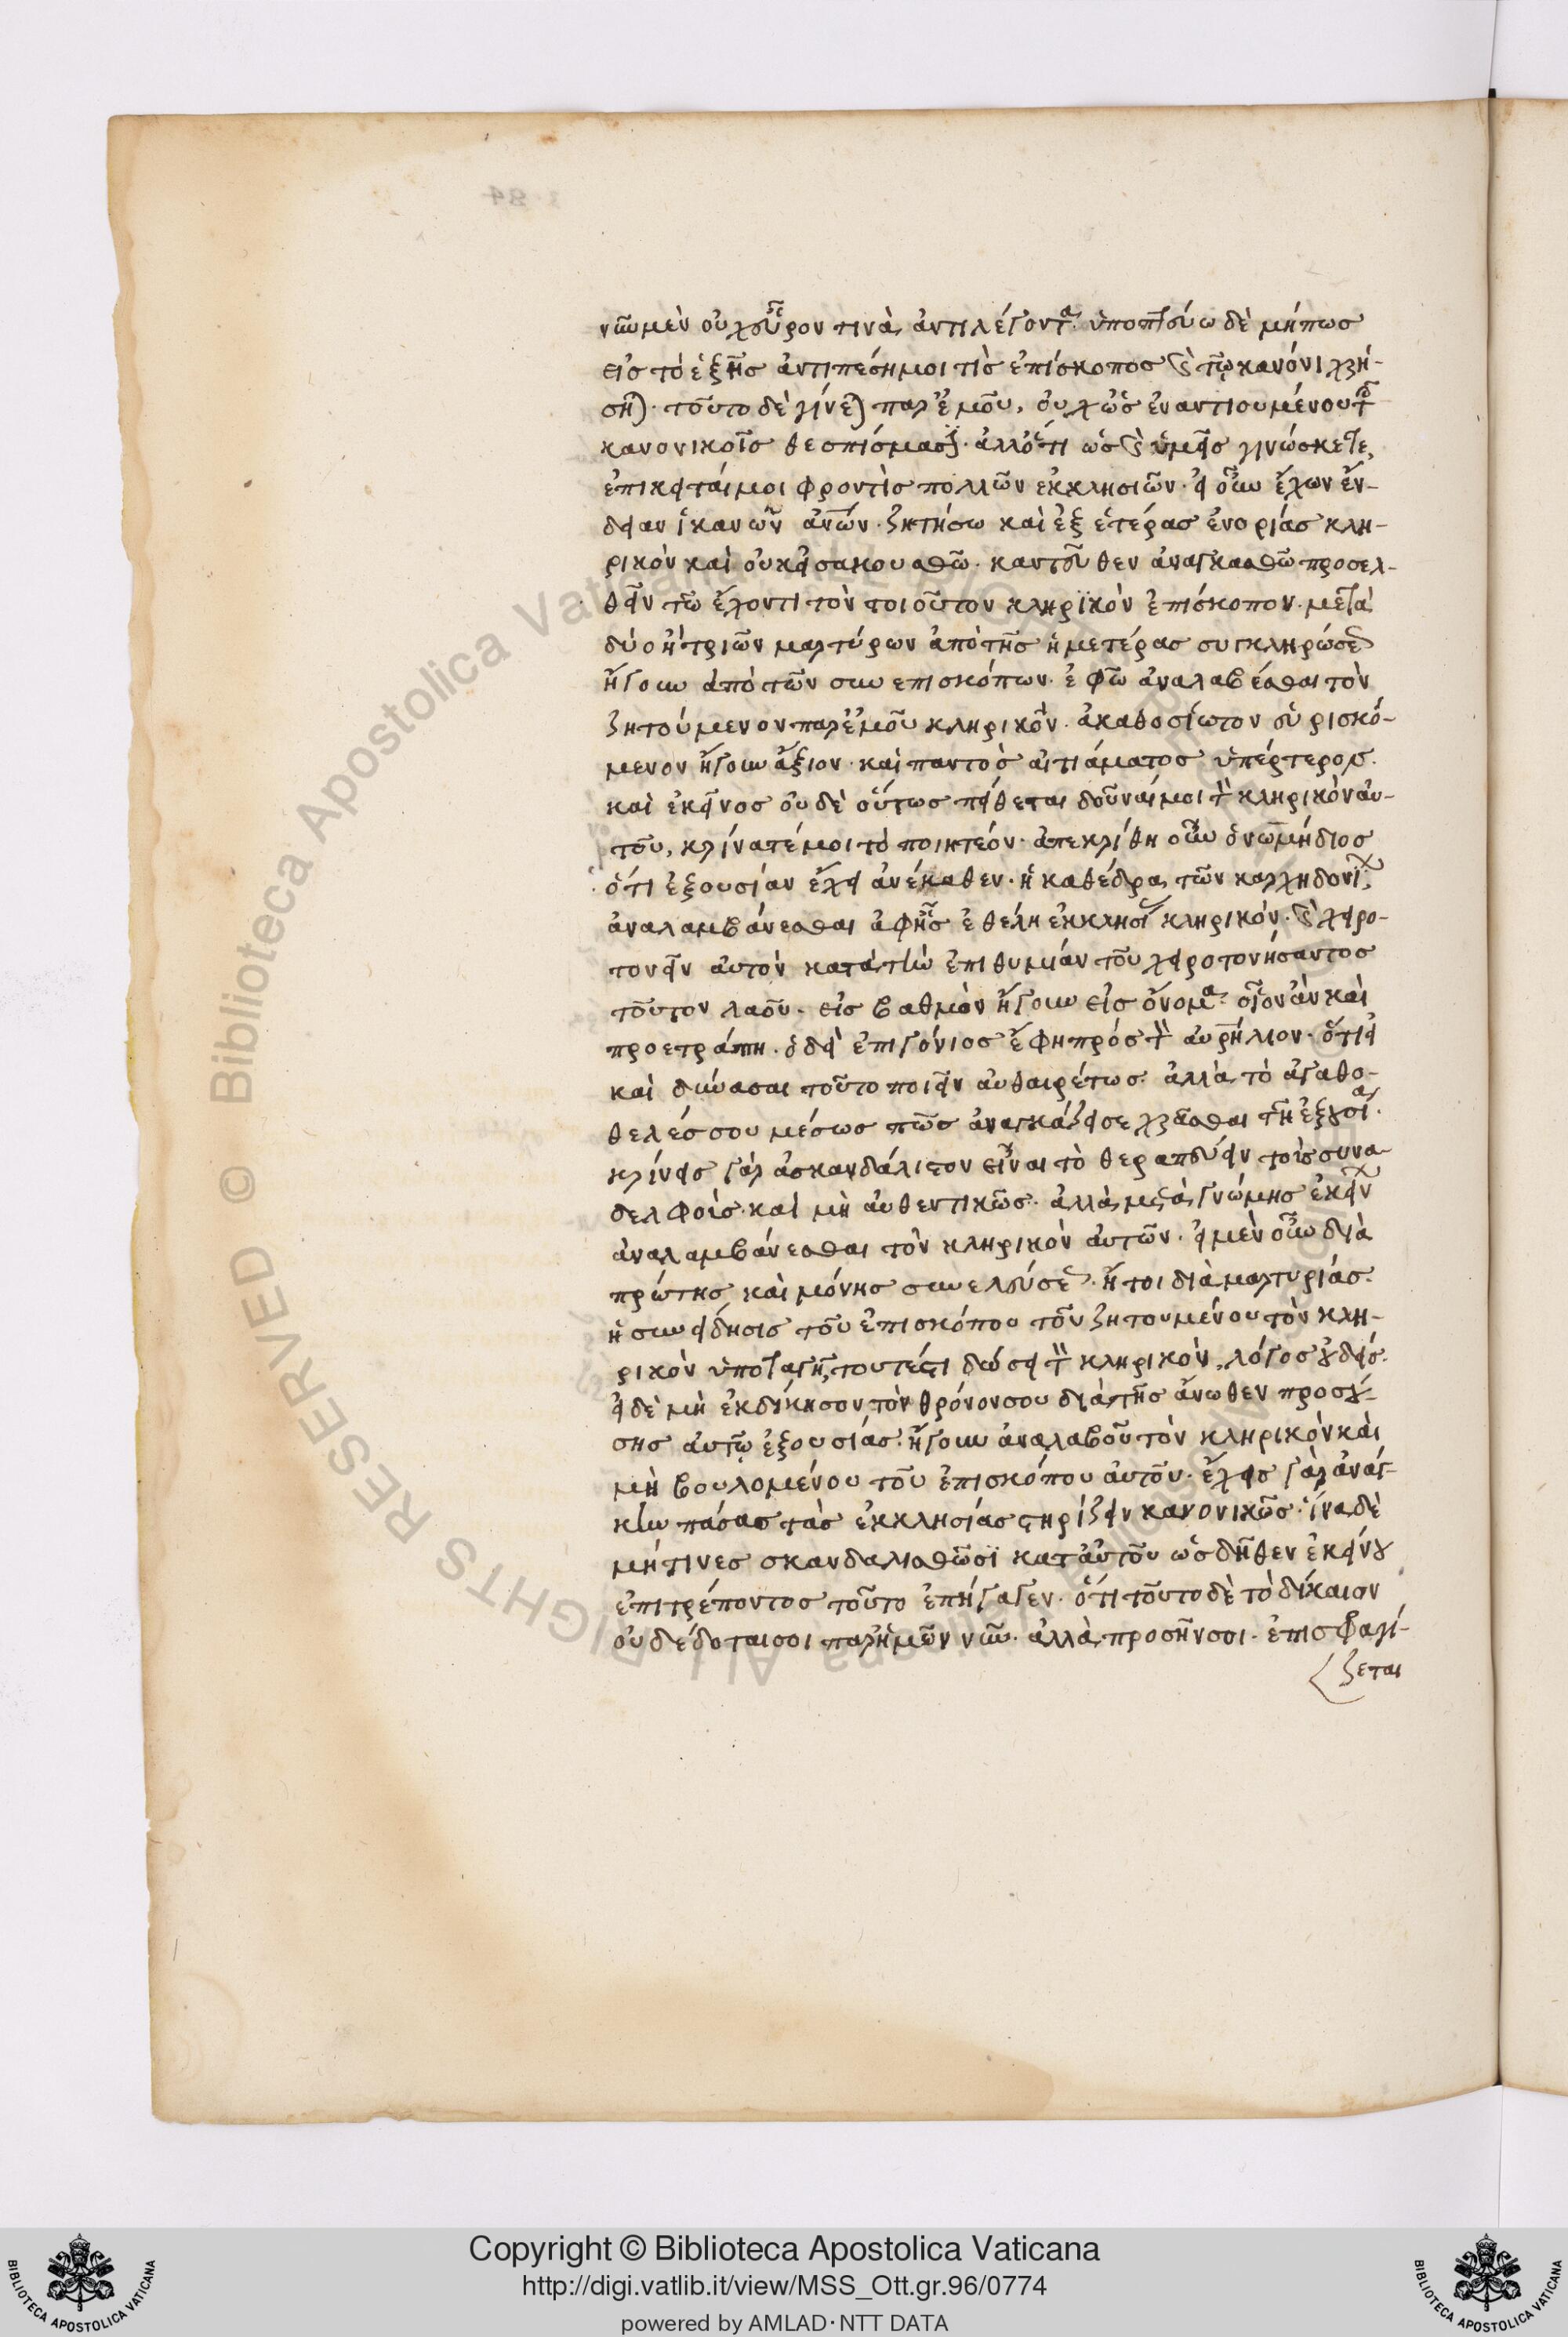 νῦν μὲν οὐχ εὗρόν τινα ἀντιλέγοντα. ὑποπτεύω δὲ μήπως
εἰς τὸ ἑξῆς ἀντιπέσῃ μοι τὶς ἐπίσκοπος καὶ τῷ κανόνι χρή-
σηται. τοῦτο δὲ γίνεται παρ' ἐμοῦ, οὐχ ὡς ἐναντιουμένου τοῖς
κανονικοῖς θεσπίσμασι. ἀλλ' ὅτι ὡς καὶ ὑμεῖς γινώσκετε,
ἐπικειταί μοι φροντὶς πολλῶν ἐκκλησιῶν. εἰ οὖν ἔχων ἔν-
δειαν ἱκανῶν ἀνῶν. ζητήσω καὶ ἐξ ἑτέρας ἐνορίας κλη-
ρικὸν καὶ οὐκ εἰσακουσθῶ. καντεῦθεν ἀναγκασθῶ προσελ-
θεῖν τῷ ἔχοντι τὸν τοιοῦτον κληρικὸν ἐπίσκοπον. μετὰ
δύο ἢ τριῶν μαρτύρων ἀπὸ τῆς ἡμετέρας συγκληρώσεως
ἤγουν ἀπὸ τῶν συνεπισκόπων. ἐφ' ῷ ἀναλαβέσθαι τὸν
ζητούμενον παρ' ἐμοῦ κληρικὸν. ἀκαθοσίωτον εὑρισκό-
μενον ἤγουν ἄξιον. καὶ παντὸς αἰτιάματος ὑπέρτερον.
καὶ ἐκεῖνος οὐδὲ οὕτως πείθεται δοῦναί μοι τὸν κληρικὸν αὐ-
τοῦ, κρίνατέ μοι τὸ ποιητέον. ἀπεκρίθη οὖν ὁ νωμήδιος
ὅτι ἐξουσίαν ἔχει ἀνέκαθεν. ἡ καθέδρα τῶν καρχηδονίων,
ἀναλαμβάνεσθαι ἀφ' ἧς ἐθέλῃ ἐκκλησίας κληρικόν. καὶ χειρο-
τονεῖν αὐτὸν κατὰ τὴν ἐπιθυμίαν τοῦ χειροτονήσαντος
τοῦτον λαοῦ. εἰς βαθμὸν ἤγουν εἰς ὄνομα. οἷον ἂν καὶ
προετράπη. ὁ δὲ ἐπιγόνιος ἔφη πρὸς τὸν αὐρήλιον. ὅτι εἰ
καὶ δύνασαι τοῦτο ποιεῖν αὐθαιρέτως. ἀλλὰ τὸ ἀγαθο-
θελές σου μέσως πῶς ἀναγκάζει σε χρᾶσθαι τῇ ἐξουσίᾳ.
κρίνεις γὰρ ἀσκανδάλιστον εἶναι τὸ θεραπεύειν τοὶς συνα-
δελφοὶς. καὶ μὴ αὐθεντικῶς. ἀλλὰ μετὰ γνώμης ἐκείνων
ἀναλαμβάνεσθαι τὸν κληρικὸν αὐτῶν. εἰ μὲν οὖν διὰ
πρώτης καὶ μόνης συνελεύσεως. ἤτοι διὰ μαρτυρίας.
ἡ συνείδησις τοῦ ἐπισκόπου τοῦ ζητουμένου τὸν κλη-
ρικὸν ὑποταγῇ, τουτέστι δώσει τὸν κληρικὸν, λόγος οὐδείς.
εἰ δὲ μὴ ἐκδίκησον τὸν θρόνον σου διὰ τῆς ἄνωθεν προσού-
σης αὐτῷ ἐξουσίας. ἤγουν ἀναλαβοῦ τὸν κληρικὸν καὶ
μὴ βουλομένου τοῦ ἐπισκόπου αὐτοῦ. ἔχεις γὰρ ἀνάγ-
κην πάσας τὰς ἐκκλησίας στηρίζειν κανονικῶς. ἵνα δὲ
μή τινες σκανδαλισθῶσι κατ' αὐτοῦ ὡς δῆθεν ἐκείνου
ἐπιτρέποντος τοῦτο ἐπήγαγεν. ὅτι τοῦτο δὲ τὸ δίκαιον
οὐ δέδοταί σοι παρ' ἡμῶν νῦν. ἀλλὰ προσῆν σοι. ἐπισφραγί-
ζεται
Copyright © Biblioteca Apostolica Vaticana
http://digi.vatlib.it/view/MSS_Ott.gr.96/0774
powered by AMLAD·NTT DATA